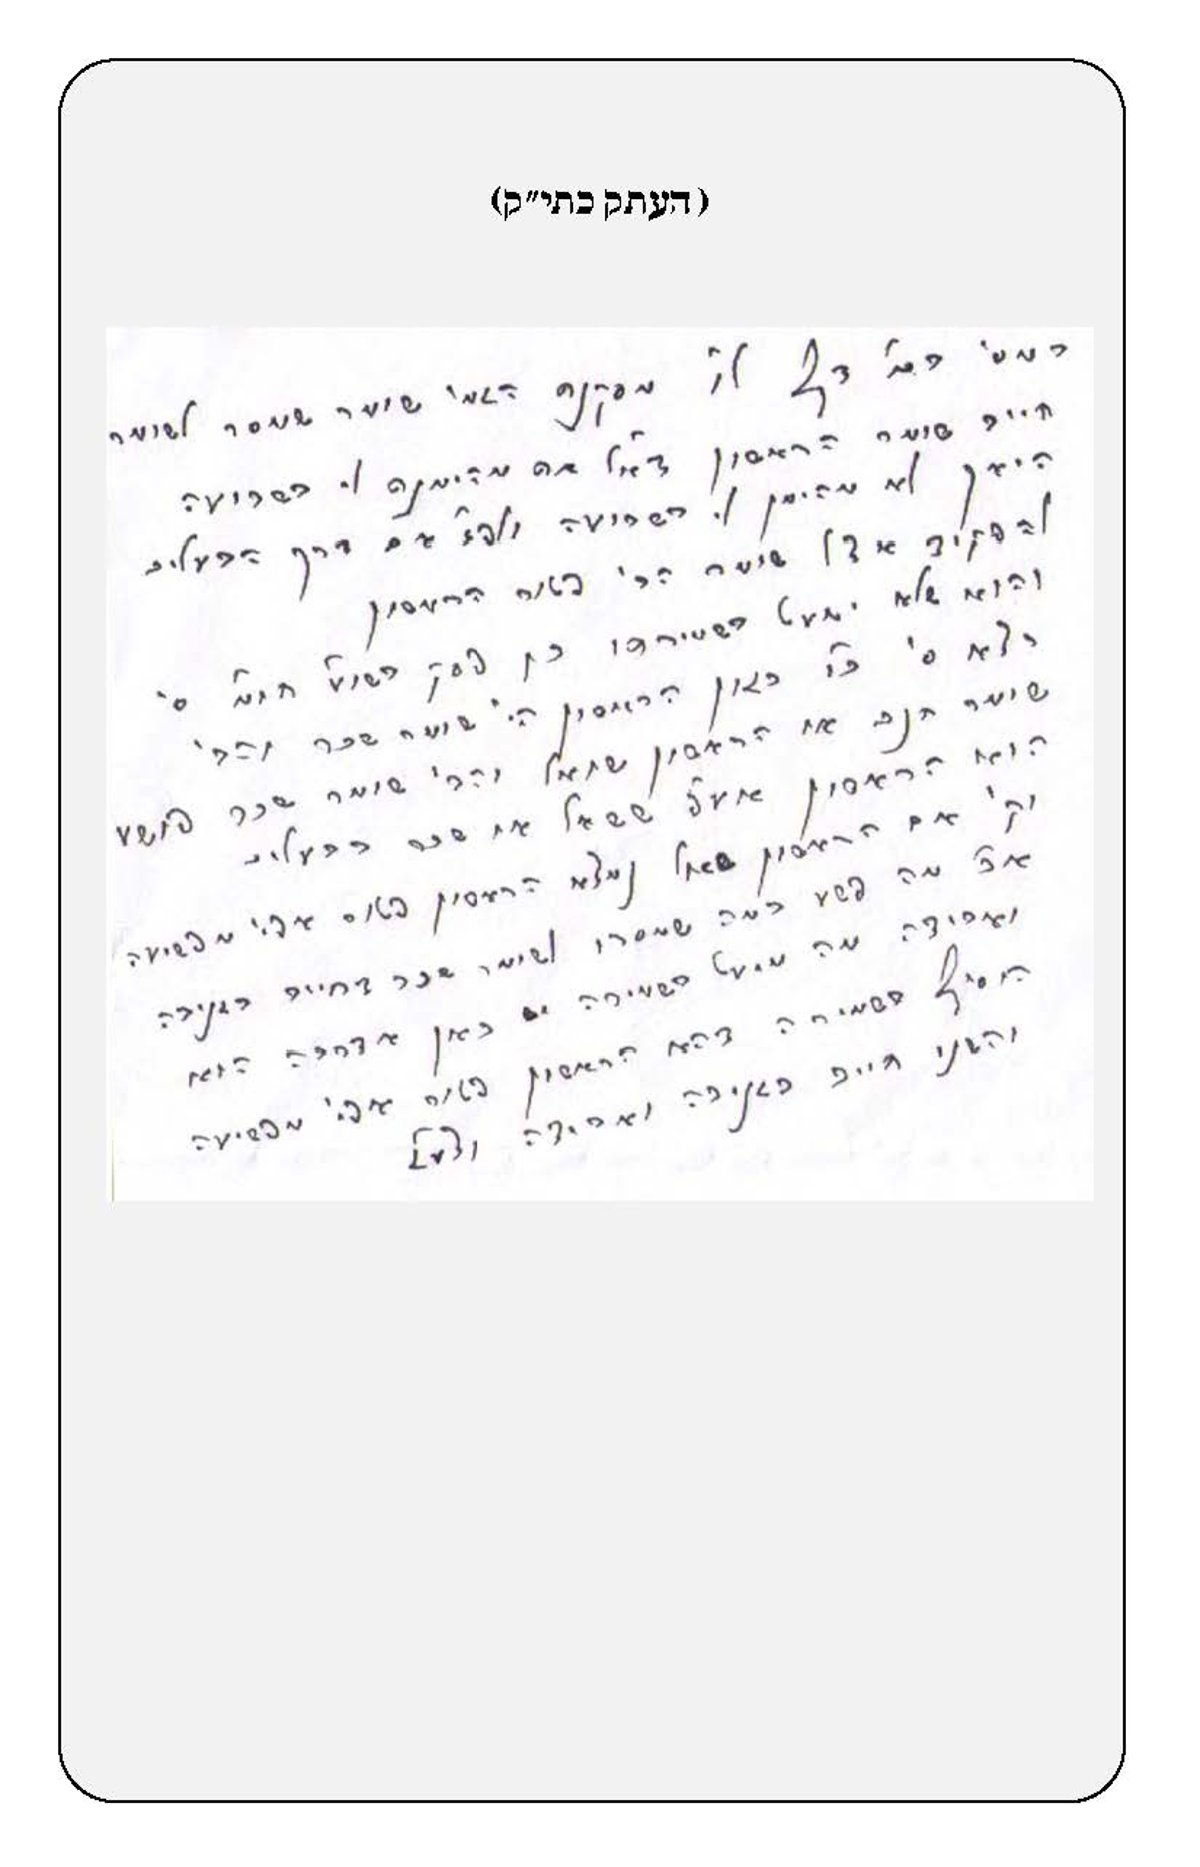 (העתק כתי״ק)
במס' ב"מ דף לו מסקנת הגמ' שומר שמסר לשומר
חייב שומר הראשון דא"ל את מהימנת לי בשבועה
היאך לא מהימן לי בשבועה ולפ"ז אם דרך הבעלים
להפקיד אצל שומר הב' פטור הראשון
והוא שלא ימעט בשמירתו כן פסק בשוע"ע חו"מ סי'
רצ"א סי' כ"ו כגון הראשון הי' שומר שכר והב'
שומר חנם או הראשון שואל והב' שומר שכר פושע
הוא הראשון אעפ"י ששאל או שכר בבעלים
וק' אם הראשון שואל נמצא הראשון פטור אפי' מפשיעה
א"כ מה פשע במה שמסרו לשומר שכר דחייב בגניבה
ואבידה מה מיעט בשמירה יש כאן אדרבה הוא
הוסיף בשמירה דהא הראשון פטור אפי' מפשיעה
והשני חייב בגניבה ואבידה וצע"ג